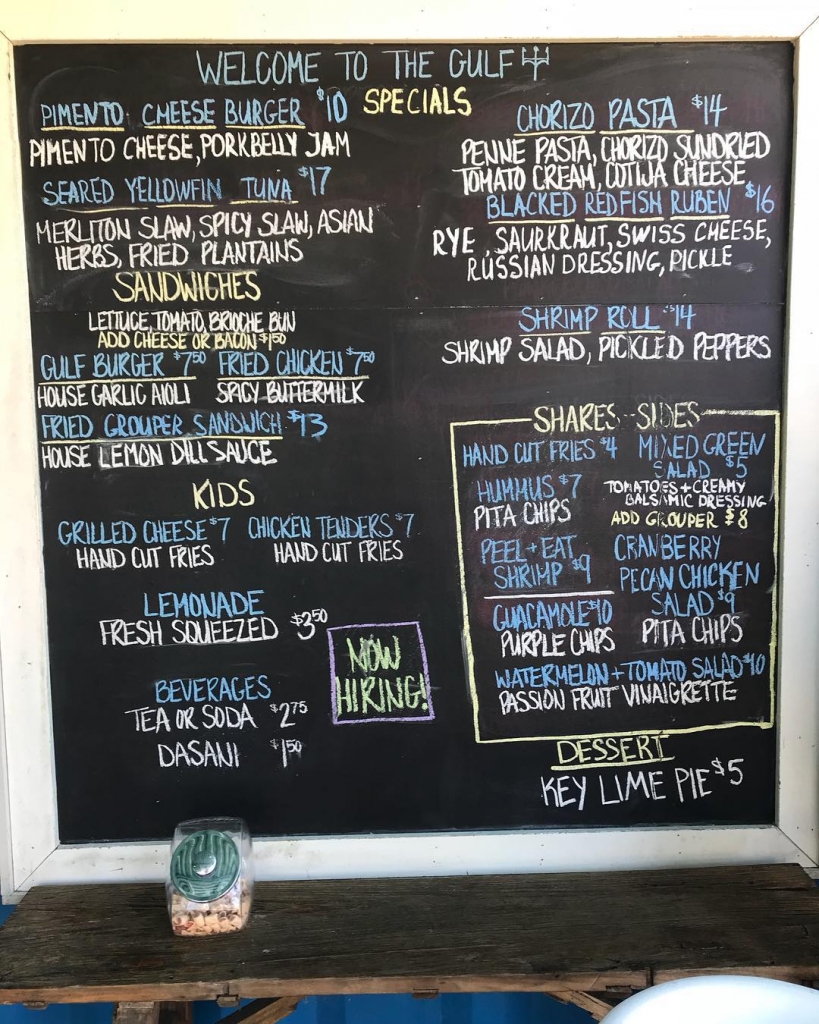 WELCOME TO THE GULF
SPECIALS
PIMENTO CHEESE BURGER $10
PIMENTO CHEESE, PORKBELLY JAM
SEARED YELLOWFIN TUNA $17
MERLITON SLAW, SPICY SLAW, ASIAN
HERBS, FRIED PLANTAINS
CHORIZO PASTA $14
PENNE PASTA, CHORIZO SUNDRIED
TOMATO CREAM, COTIJA CHEESE
BLACKED REDFISH RUBEN $16
RYE, SAURKRAUT, SWISS CHEESE,
RUSSIAN DRESSING, PICKLE
SHRIMP ROLL $14
SHRIMP SALAD, PICKLED PEPPERS
SANDWICHES
LETTUCE, TOMATO, BRIOCHE BUN
ADD CHEESE OR BACON $1.50
GULF BURGER $7.50 FRIED CHICKEN $7.50
HOUSE GARLIC AIOLI SPICY BUTTERMILK
FRIED GROUPER SANDWICH $13
HOUSE LEMON DILL SAUCE
KIDS
GRILLED CHEESE $7 CHICKEN TENDERS $7
HAND CUT FRIES HAND CUT FRIES
LEMONADE
FRESH SQUEEZED $3.50
BEVERAGES
TEA OR SODA $2.75
DASANI $1.50
NOW
HIRING!
SHARES-SIDES
HAND CUT FRIES $4
HUMMUS $7
PITA CHIPS
PEEL + EAT
SHRIMP $9
GUACAMOLE $10
PURPLE CHIPS
MIXED GREEN
SALAD $5
TOMATOES + CREAMY
BALSAMIC DRESSING
ADD GROUPER $8
CRANBERRY
PECAN CHICKEN
SALAD $9
PITA CHIPS
WATERMELON + TOMATO SALAD $10
PASSION FRUIT VINAIGRETTE
DESSERT
KEY LIME PIE $5